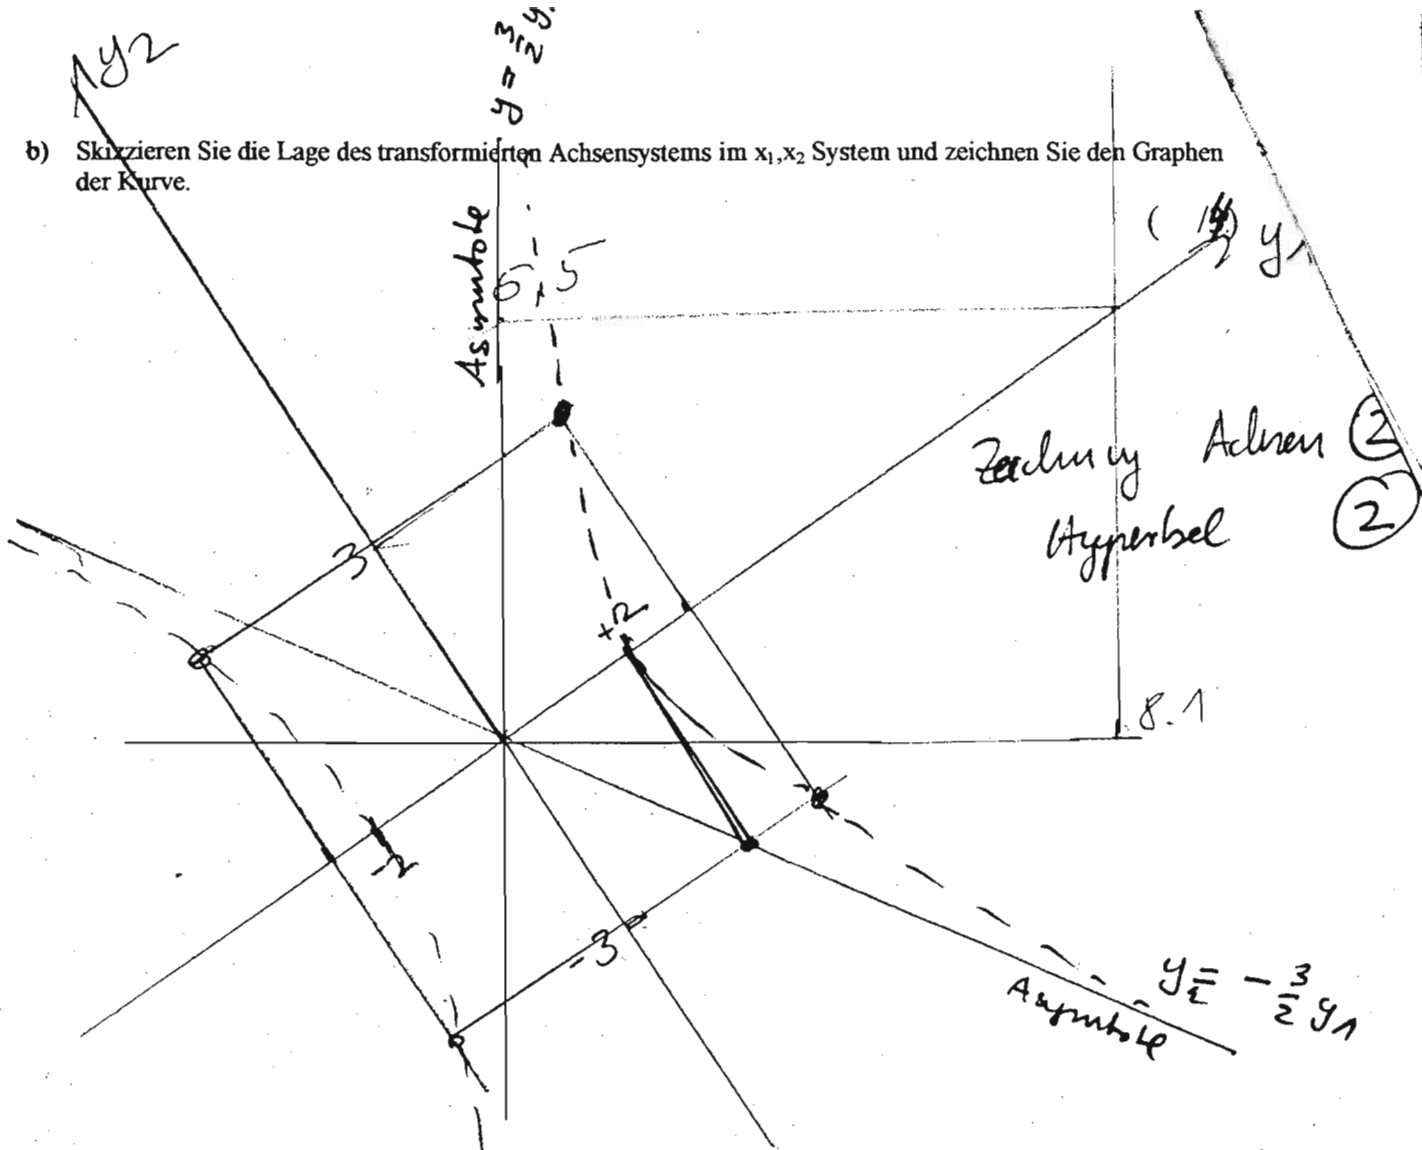 y2
y = 3/2 y
b) Skizzieren Sie die Lage des transformierten Achsensystems im x₁,x₂ System und zeichnen Sie den Graphen
der Kurve.
Assimtote
6,5
y1
Zeichnung Achsen 2
Hyperbel 2
3
+2
8.1
-2
-3
y2 = - 3/2 y1
Asymtote